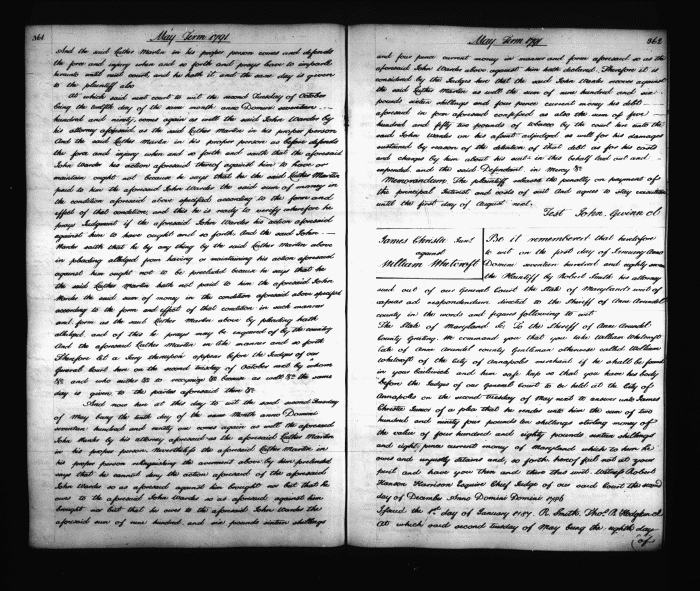 361
May Term 1791
And the said Luther Martin in his proper person comes and defends
the force and injury when and so forth and prays leave to imparle
hereunto until next court, and he hath it and the same day is given
to the plaintiff also
At which said next court to wit the second Tuesday of October
being the twelfth day of the same month anno Domini seventeen
hundred and ninety, comes again as well the said John Wanks by
his attorney aforesaid as the said Luther Martin in his proper person
And the said Luther Martin in his proper person as before defends
the force and injury when and so forth and saith that the aforesaid
John Wanks his action aforesaid thereof against him to have or
maintain ought not because he says that he the said Luther Martin
paid to him the aforesaid John Wanks the said sum of money in
the condition aforesaid above specified according to the form and
effect of that condition, and this he is ready to verify wherefore he
prays Judgment if the aforesaid John Wanks his action aforesaid
against him to have ought and so forth. And the said John
Wanks saith that he by any thing by the said Luther Martin above
in pleading alledged from having or maintaining his action aforesaid
against him ought not to be precluded because he says that he
the said Luther Martin hath not paid to him the aforesaid John
Wanks the said sum of money in the condition aforesaid above specified
according to the form and effect of that condition in such manner
and form as the said Luther Martin above by pleading hath
alledged, and of this he prays may be inquired of by the country
And the aforesaid Luther Martin in like manner and so forth
Therefore let a Jury thereupon appear before the Judges of our
General Court here on the second tuesday of October next by whom
&c and who neither &c to recognize &c because as well &c the same
day is given to the parties aforesaid there &c
And now here at this day to wit the said second Tuesday
of May being the tenth day of the same Month anno Domini
seventeen hundred and ninety one comes again as well the aforesaid
John Wanks by his attorney aforesaid as the aforesaid Luther Martin
in his proper person. Nevertheless the aforesaid Luther Martin in
his proper person relinquishing the averment above by him pretended
says that he cannot deny the action aforesaid of the aforesaid
John Wanks so as aforesaid against him brought nor but that he
owes to the aforesaid John Wanks so as aforesaid against him
brought nor but that he owes to the aforesaid John Wanks the
aforesaid sum of nine hundred and six pounds sixteen shillings
May Term 1791
362
and four pence current money in manner and form aforesaid so as the
aforesaid John Wanks above against him hath declared. Therefore it is
considered by the Judges here that the said John Wanks recover against
the said Luther Martin as well the sum of nine hundred and six
pounds sixteen shillings and four pence current money his debt
aforesaid in form aforesaid confessed as also the sum of five
hundred and fifty two pounds of tobacco by the court here unto the
said John Wanks on his assent adjudged as well for his damages
sustained by reason of the detention of that debt as for his costs
and charges by him about his suit in this behalf laid out and
expended and the said Defendant in Mercy &c
Memorandum The plaintiff releases the penalty on payment of
the principal Interest and costs of suit And agrees to stay execution
until the first day of August next.
Test John Gwinn cl
James Christie Junr
against
William Whetcroft
Be it remembered that heretofore
to wit on the first day of January Anno
Domini seventeen hundred and eighty seven
the Plaintiff by Robert Smith his attorney
sued out of our General Court the State of Maryland's writ of
capias ad respondendum directed to the Sheriff of Anne Arundel
county in the words and figures following to wit
The State of Maryland ss. To the Sheriff of Anne Arundel
County Greeting. We command you that you take William Whetcroft
late of Anne Arundel county Gentleman otherwise called William
Whetcroft of the City of Annapolis merchant if he shall be found
in your bailiwick and him safe keep so that you have his body
before the Judges of our General Court to be held at the City of
Annapolis on the second tuesday of May next to answer unto James
Christie Junior of a plea that he render unto him the sum of two
hundred and ninety four pounds ten shillings sterling money of
the value of four hundred and eighty pounds sixteen shillings
and eight pence current money of Maryland which to him he
owes and unjustly detains and so forth hereof fail not at your
peril and have you then and there this writ. Witness Robert
Hanson Harrison Esquire Chief Judge of our said Court the second
day of December Anno Domini Domini 1786
Issued the 1st day of January 1787. R. Smith. Thos. B. Hodgkin cl
At which said second tuesday of May being the eighth day
(of